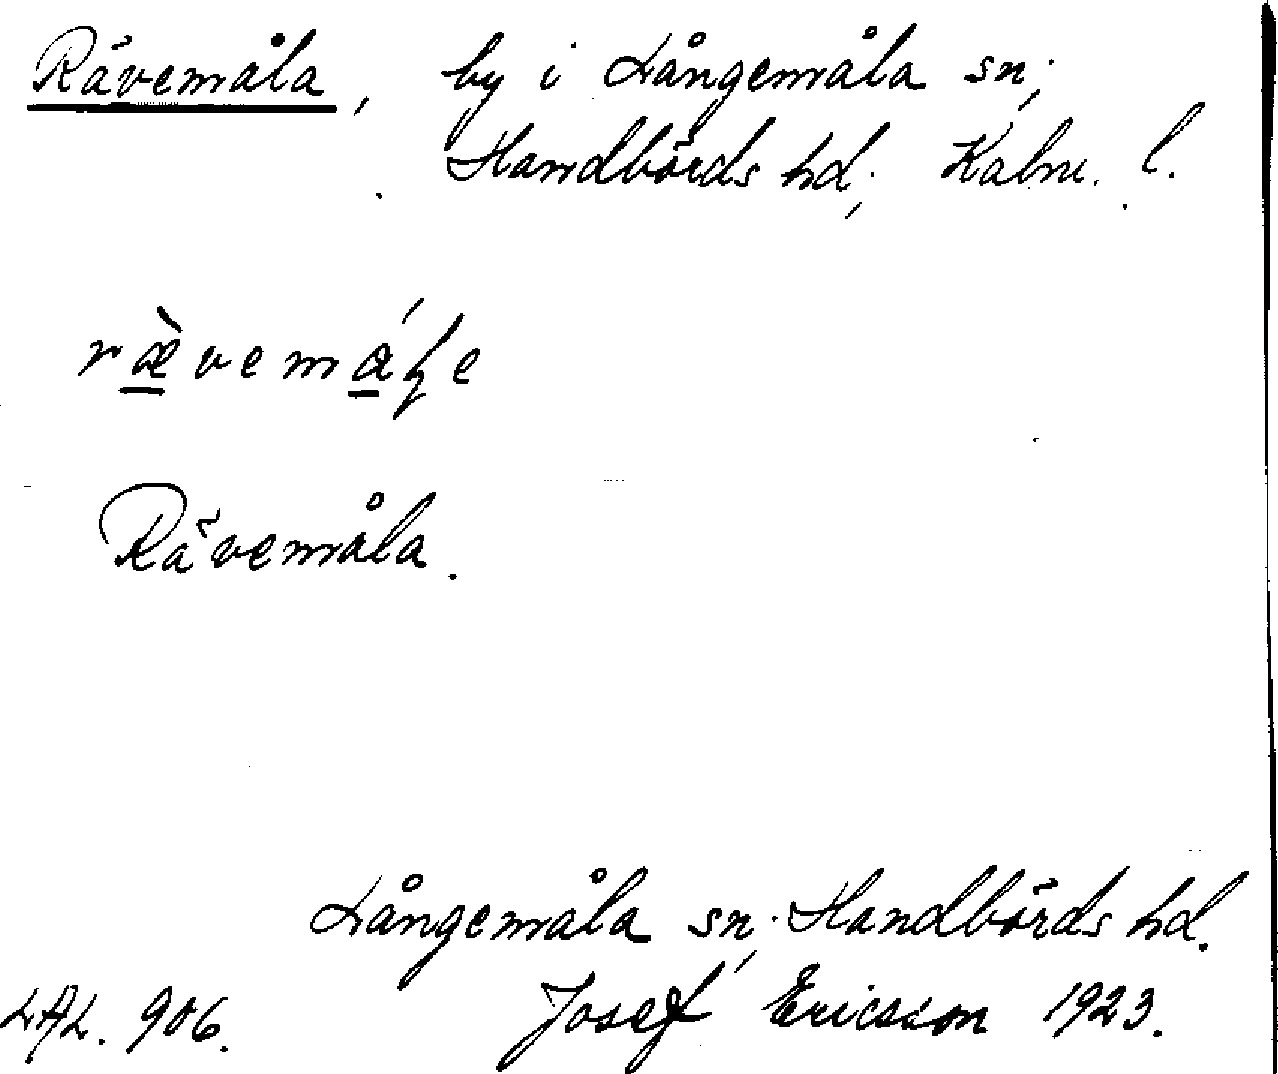 Rävemåla, by i Långemåla sn;
Handbörds hd; Kalm. l.
ræ̀vemáɽe
Rävemåla.
Långemåla sn; Handbörds hd.
LAL. 906. Josef Ericsson 1923.